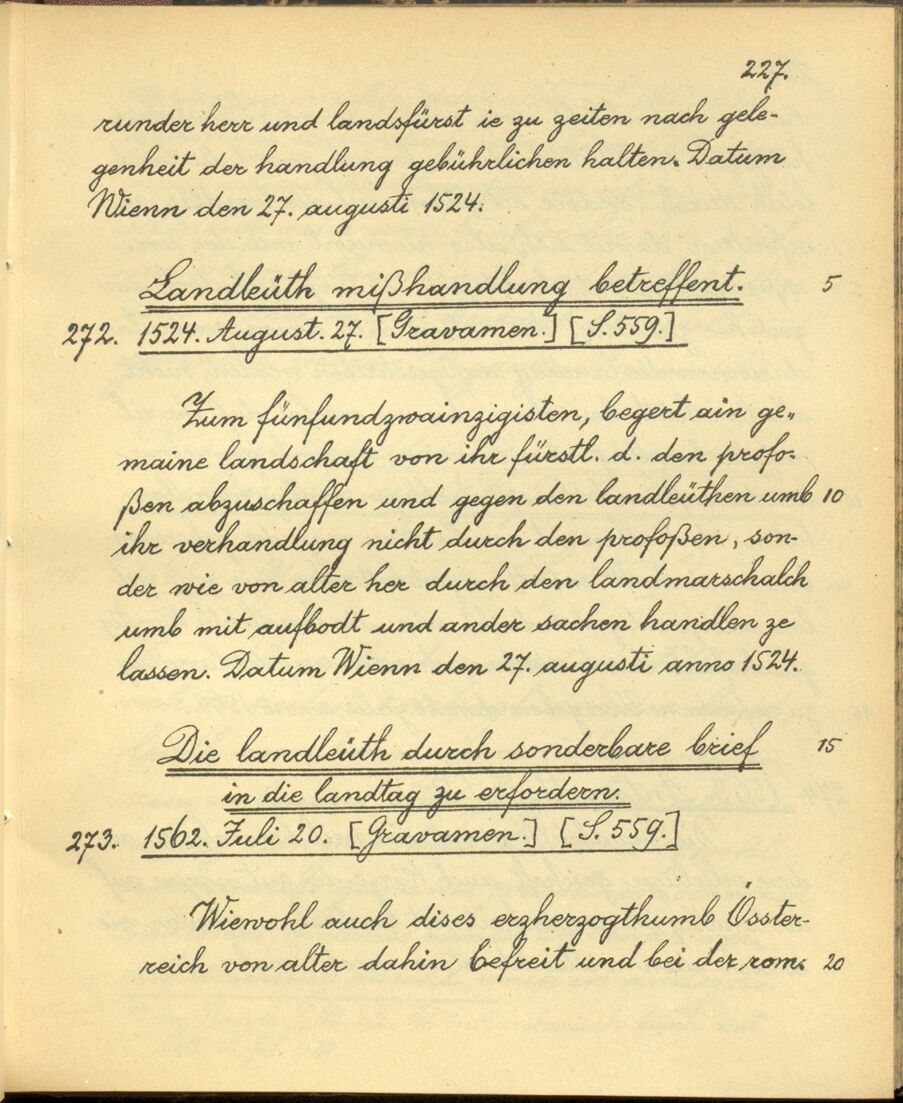 227.
runder herr und landsfürst ie zu zeiten nach gele-
genheit der handlung gebührlichen halten. Datum
Wienn den 27. augusti 1524.
Landleüth mißhandlung betreffent. 5
272. 1524. August. 27. [Gravamen.] [S. 559.]
Zum fünfundzwainzigisten, begert ain ge„
maine landschaft von ihr fürstl. d. den profo-
ßen abzuschaffen und gegen den landleüthen umb 10
ihr verhandlung nicht durch den profoßen, son-
der wie von alter her durch den landmarschalch
umb mit aufbodt und ander sachen handlen ze
lassen. Datum Wienn den 27. augusti anno 1524.
Die landleüth durch sonderbare brief 15
in die landtag zu erfordern.
273. 1562. Juli 20. [Gravamen.] [S. 559.]
Wiewohl auch dises erzherzogthumbÖsster-
reich von alter dahin befreit und bei der rom. 20